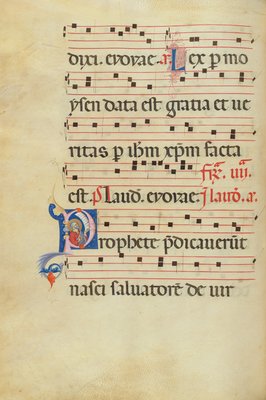 dixi. evovae. a. Lex p mo
ysen data est gratia et ve
ritas p ihm xpm facta
est. ps. Laud. evovae. In laud. a.
Prophete pdicaverūt
nasci salvatorē de vir